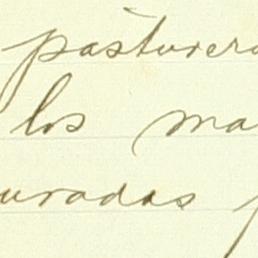 pasturera
los ma
uradas